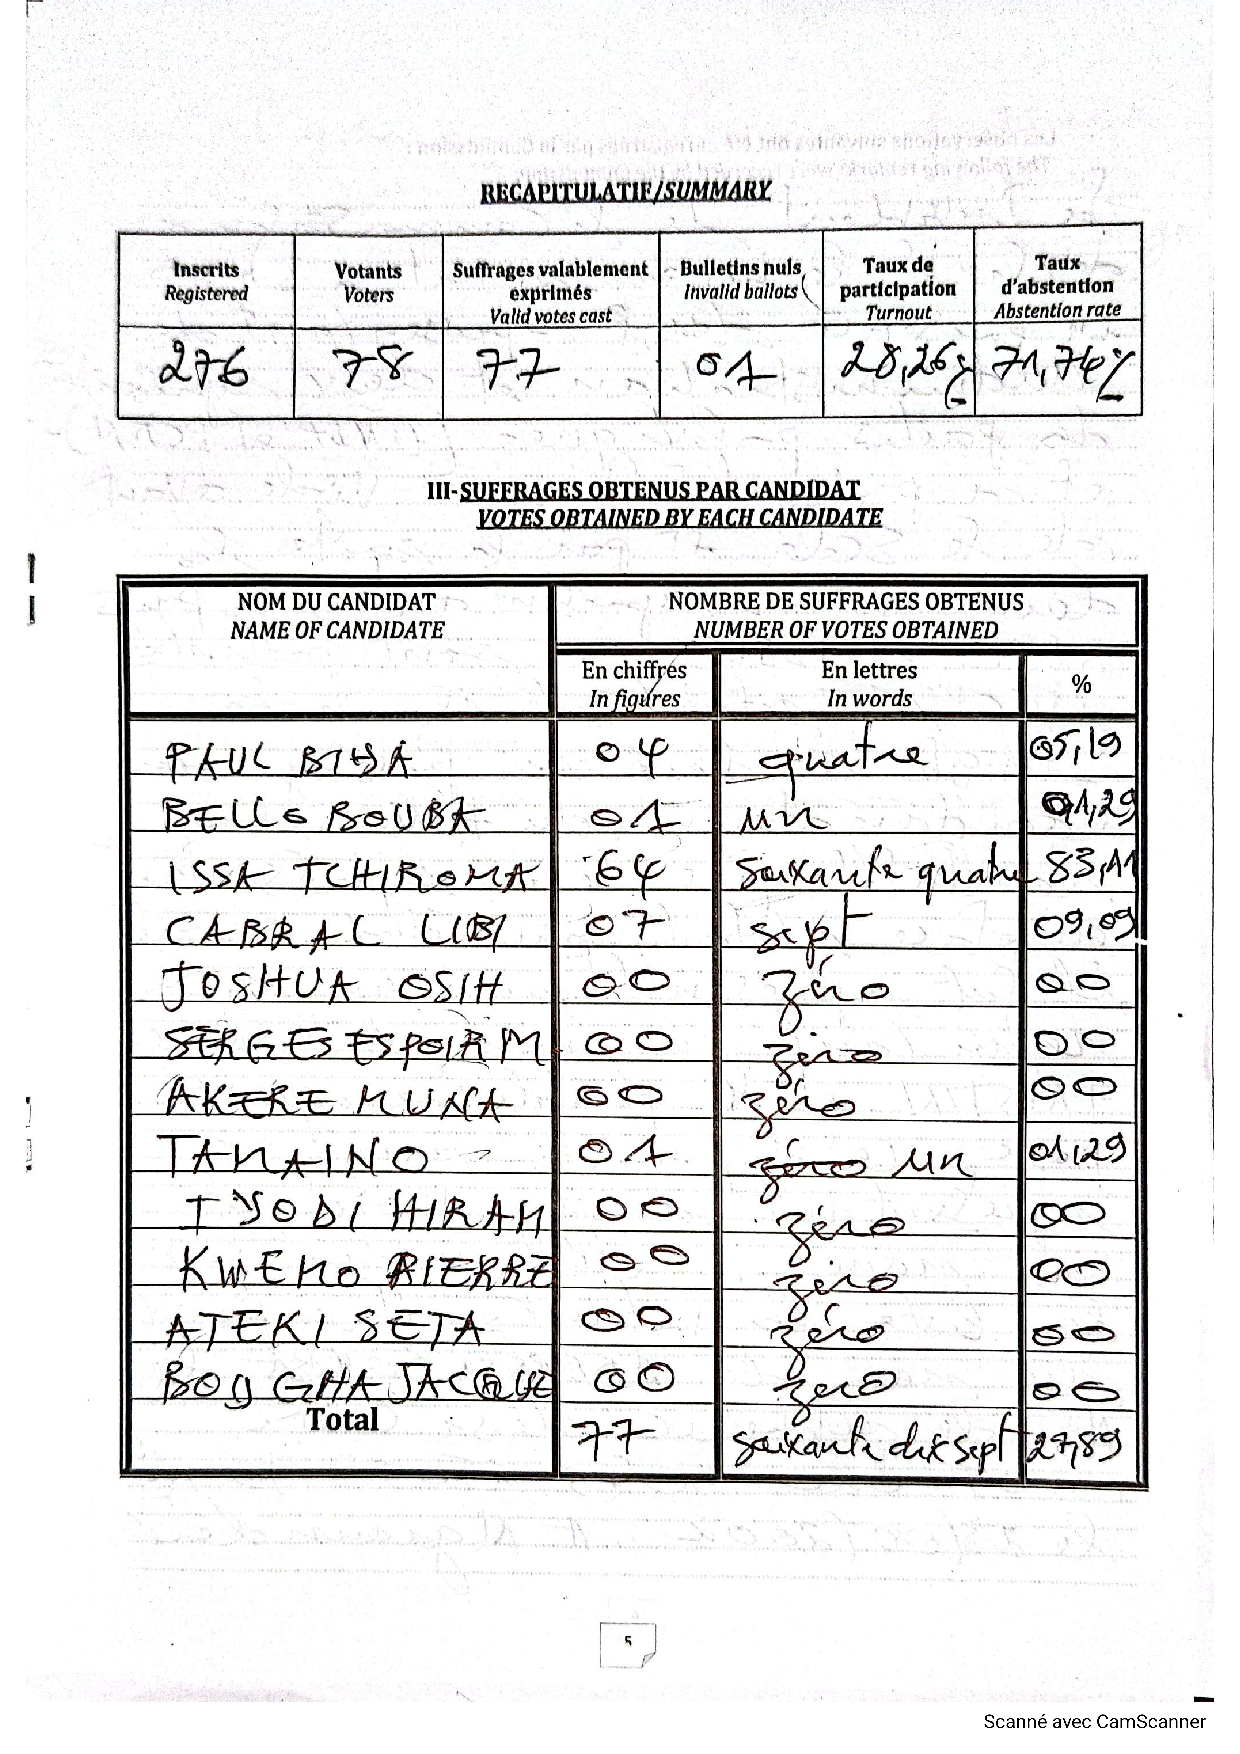 RECAPITULATIF/SUMMARY
Inscrits
Registered
Votants
Voters
Suffrages valablement
exprimés
Valid votes cast
Bulletins nuls
Invalid ballots
Taux de
participation
Turnout
Taux
d'abstention
Abstention rate
276 78 77 01 28,26% 71,74%
III-SUFFRAGES OBTENUS PAR CANDIDAT
VOTES OBTAINED BY EACH CANDIDATE
NOM DU CANDIDAT
NAME OF CANDIDATE
NOMBRE DE SUFFRAGES OBTENUS
NUMBER OF VOTES OBTAINED
En chiffres
In figures
En lettres
In words
%
PAUL BIYA 04 quatre 05,19
BELLO BOUBA 01 un 01,29
ISSA TCHIROMA 64 soixante quatre 83,11
CABRAL LIBI 07 sept 09,09
JOSHUA OSIH 00 zéro 00
SERGES ESPOIR M 00 zéro 00
AKERE MUNA 00 zéro 00
TAMAINO 01 zéro un 01,29
IYODI HIRAM 00 zéro 00
KWEMO PIERRE 00 zéro 00
ATEKI SETA 00 zéro 00
BOUGHA JACQUE 00 zero 00
Total 77 soixante dix sept 27,89
5
Scanné avec CamScanner